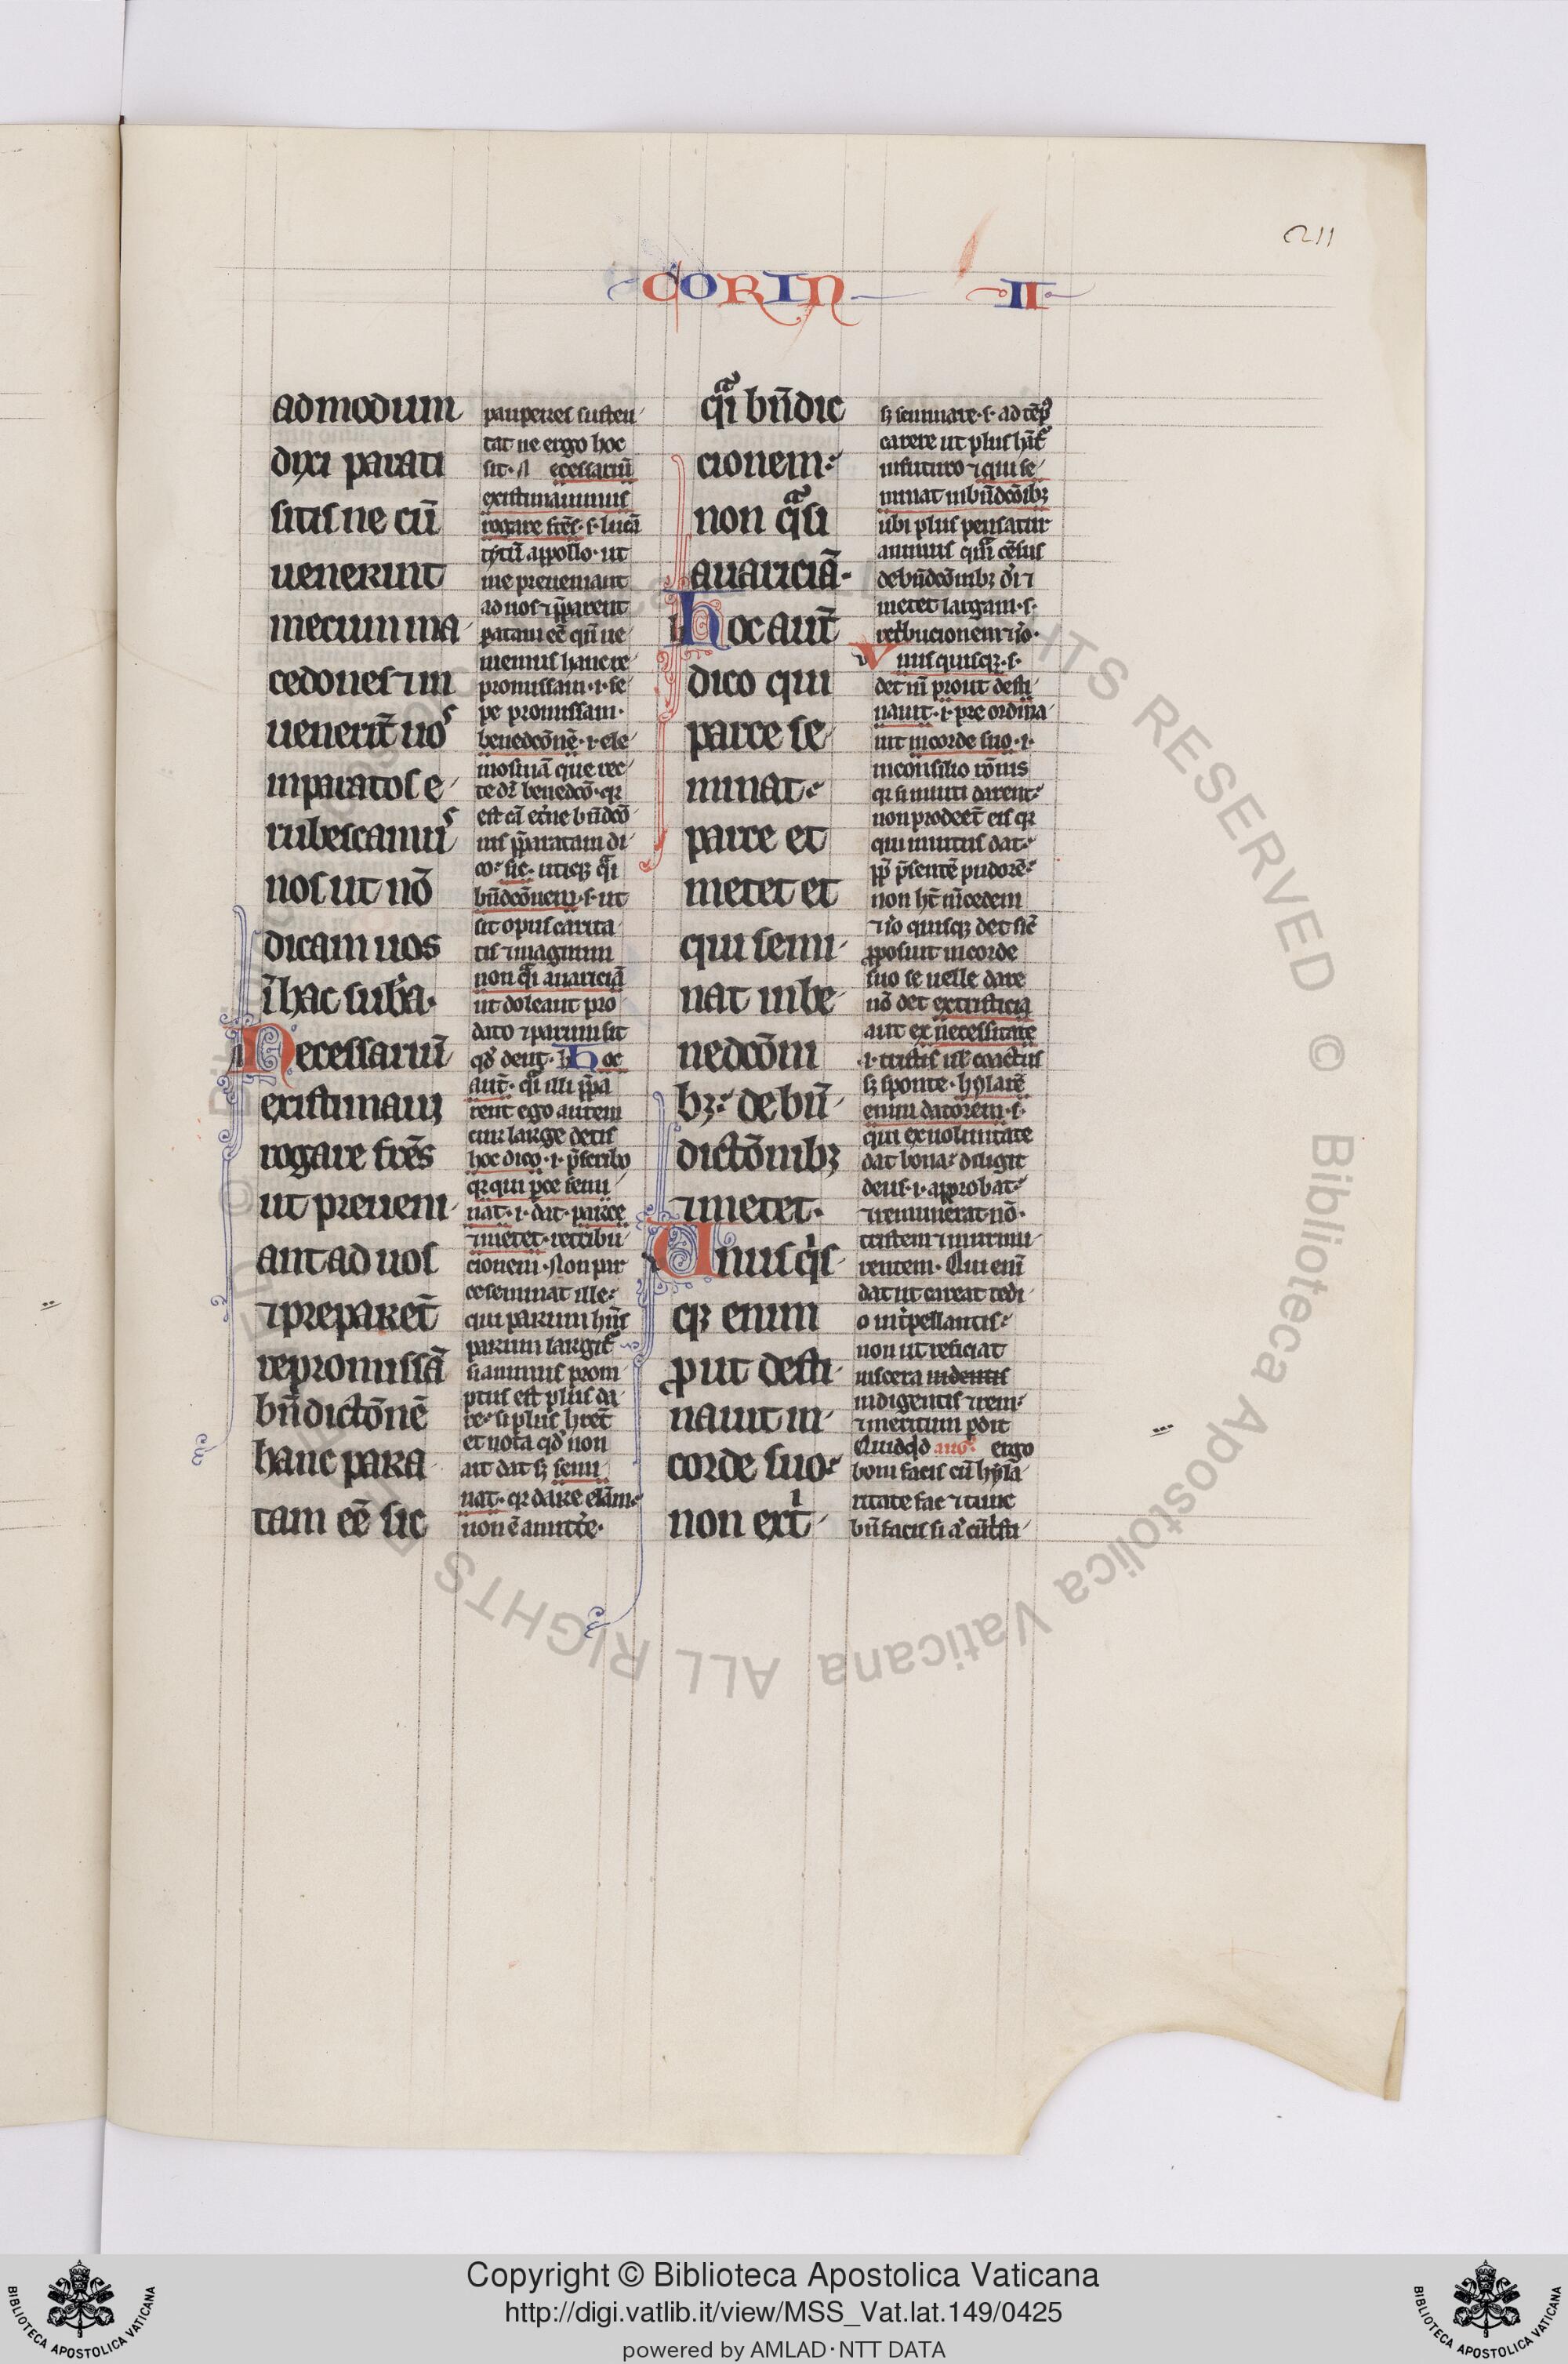 211
CORIN II
admodum
dixi parati
sitis ne cū
uenerint
mecum ma
cedones ⁊ in
uenerīt uos
inparatos e
rubescamus
nos ut nō
dicam uos
ī hac suba.
Necessariū
existimaui
rogare frēs
ut preueni
ant ad uos
⁊ preparēt
repromissā
bn̄dictōnē
hanc para
tam eē sic
pauperes susten
tat ne ergo hoc
sit. N ecessariū
existimauimus
rogare frēs. s. lucā
tytū appollo. ut
me preueniant
ad uos ⁊ p̄parent
patam eē qn̄ ue
niemus hanc re
promissam. i. se
pe promissam.
benedcōnē. i. ele
mosinā que rec
te dr̄ benedcō. qr
est cā et̄ne bn̄dcō
nis p̄paratam di
co. sic. utiqꝫ q̄i
bn̄dcōnem. s. ut
sit opus carita
tis ⁊ magnum
non q̄i auariciā
ut doleant pro
dato ⁊ parum sit
qd̄ dent. Hoc
aut̄. q̄i illi p̄pa
rent ego autem
cur large detis
hoc dico. i. p̄scribo
qr qui pce semi
nat. i. dat. parce
⁊ metet. retribu
cionem. Non par
ce seminat ille
qui parum hn̄s
parum largit̄
si animus prom
ptus est plus da
re. si plus hret̄
et nota qd̄ non
ait dat sꝫ semi
nat. qr dare elām.
non ē amitt̄e.
q̄i bn̄dic
cionem.
non q̄si
auariciā.
hoc aut̄
dico qui
parce se
minat.
parce et
metet et
qui semi
nat in be
nedcōni
bꝫ. de bn̄
dictōnibꝫ
⁊ metet.
Unusq̇s
qꝫ enim
ꝓut desti
nauit in
corde suo.
non ext
sꝫ seminare. s. ad tēp̄
carere ut plus hāt̄
in futuro ⁊ qui se
minat in bn̄dcōibꝫ
ubi plus pensatur
animus q̄ⁱ cēsus
de bn̄dcōnibꝫ dī ⁊
metet largam. s.
ret̄bucionem ⁊ iō.
Vnusquisqꝫ. s.
det m̄ prout desti
nauit. i. pre ordina
uit in corde suo. i.
in consilio rōnis
qr si inuiti darent
non prodeēt eis qr
qui inuitus dat
pp̄ p̄sentē pudorē
non ht̄ m̄cedem
⁊ iō quisqꝫ det sic̄
ꝓposuit in corde
suo se uelle dare
nō det ex tristicia
aut ex necessitate
.i. tristis ul̄ coactus
sꝫ sponte. hylarē
enim datorem. s.
qui ex uoluntate
dat bona. diligit
deus. i. approbat
⁊ remunerat nō.
tristem ⁊ murmu
rentem. Qui eni
dat ut careat tedi
o int̄pellantis
non ut reficiat
uiscera
indigentis ⁊ rem
⁊ meritum ꝑdit
Quidqd̄ aug. ergo
boni facis cū hyla
ritate fac ⁊ tunc
bn̄ facis si
Copyright © Biblioteca Apostolica Vaticana
http://digi.vatlib.it/view/MSS_Vat.lat.149/0425
powered by AMLAD · NTT DATA
BIBLIOTECA APOSTOLICA VATICANA
BIBLIOTECA APOSTOLICA VATICANA
© Biblioteca Apostolica Vaticana ALL RIGHTS RESERVED